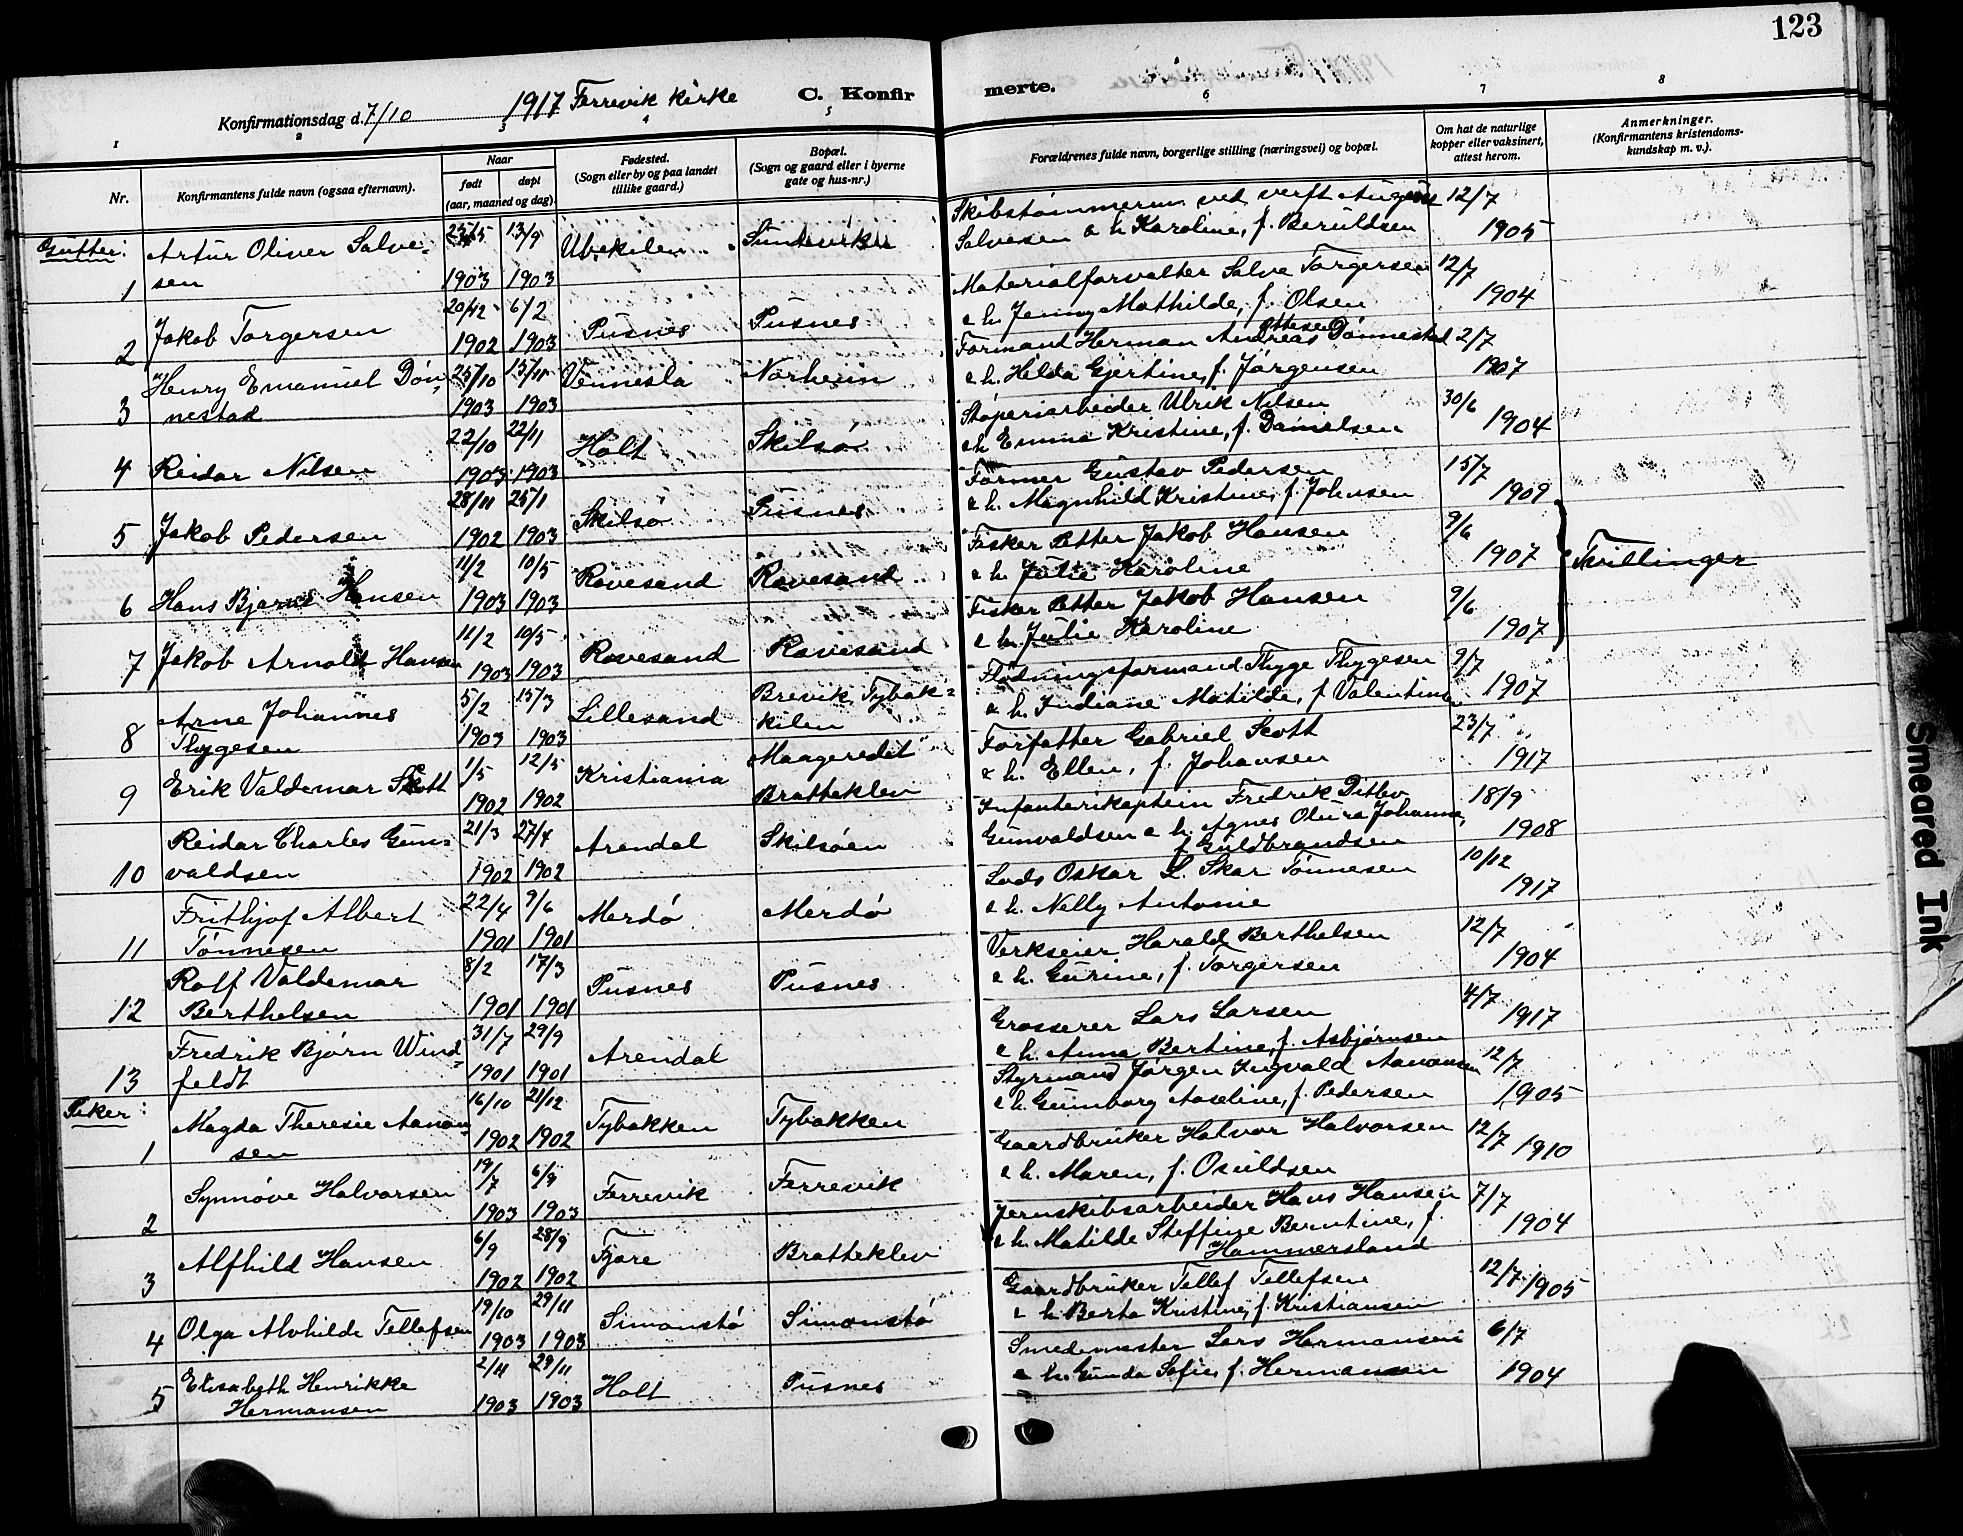 123
Konfirmationsdag d. 7/10 1917 Færrevik kirke C. Konfirmerte.
1 2 3 4 5 6 7 8
Nr. Konfirmantens fulde navn (ogsaa efternavn). Naar født døpt (aar, maaned og dag). Fødested. (Sogn eller by og paa landet tillike gaard.) Bopæl. (Sogn og gaard eller i byerne gate og hus-nr.) Forældrenes fulde navn, borgerlige stilling (næringsvei) og bopæl. Om hat de naturlige kopper eller vaksinert, attest herom. Anmerkninger. (Konfirmantens kristendoms-kundskap m. v.).
Gutter:
1 Artur Oliver Salve- 13/9 Skibstømmerm. ved verft August 12/7
sen 1903 1903 Salvesen & h. Karoline, f. Beruldsen 1905
2 Jakob Torgersen 20/12 6/2 Pusnes Pusnes Materialforvalter Salve Torgersen 12/7
1902 1903 & h. Jenny Mathilde, f. Olsen 1904
3 Henry Emanuel Døn- 25/10 15/11 Vennesla Norheim Formand Herman Andreas Ottesen Dønnestad 2/7
nestad 1903 1903 & h. Hilda Gjertine, f. Jørgensen 1907
4 Reidar Nilsen 22/10 22/11 Holt Skilsø Støperiarbeider Ulrik Nilsen 30/6
1903 1903 & h. Emma Kristine, f. Danielsen 1904
5 Jakob Pedersen 28/11 25/1 Skilsø Pusnes Former Gustav Pedersen 15/7
1902 1903 & h. Magnhild Kristine, f. Johnsen 1909
6 Hans Bjarne Hansen 11/2 10/5 Ravesand Ravesand Fisker Petter Jakob Hansen 9/6
1903 1903 & h. Julie Karoline 1907 Tvillinger
7 Jakob Arnold Hansen 11/2 10/5 Ravesand Ravesand Fisker Petter Jakob Hansen 9/6
1903 1903 & h. Julie Karoline 1907
8 Arne Johannes 5/2 15/3 Lillesand Brevik, Tybak- Flødningsformand Thyge Thygesen 9/7
Thygesen 1903 1903 kilen & h. Indiane Matilde, f. Valentine 1907
9 Erik Valdemar Scott 1/5 12/5 Kristiania Maageredet Forfatter Gabriel Scott 23/7
1902 1902 Bratteklev & h. Ellen, f. Johansen 1917
10 Reidar Charles Gun- 21/3 27/4 Arendal Skilsøen Infanterikaptein Fredrik Ditlev 18/9
valdsen 1902 1902 Gunvaldsen & h. Agnes Olura Johanne, 1908
f. Guldbrandsen
11 Frithjof Albert 22/4 9/6 Merdø Merdø Lods Oskar L. Skar Tønnesen 10/12
Tønnesen 1901 1901 & h. Nelly Antonie 1917
12 Rolf Valdemar 8/2 17/3 Pusnes Pusnes Verkseier Harald Berthelsen 12/7
Berthelsen 1901 1901 & h. Gurine, f. Torgersen 1904
13 Fredrik Bjørn Wind- 31/7 29/9 Arendal Grosserer Lars Larsen 4/7
feldt 1901 1901 & h. Anna Bertine, f. Asbjørnsen 1917
Piker:
1 Magda Theresie Aanon- 16/10 21/12 Tybakken Tybakken Styrmand Jørgen Ingvald Aanonsen 12/7
sen 1902 1902 & h. Gunborg Aaseline, f. Pedersen 1905
2 Synnøve Halvorsen 19/7 6/9 Færrevik Færrevik Gaardbruker Halvor Halvorsen 12/7
1903 1903 & h. Maren, f. Osuldsen 1910
3 Alfhild Hansen 6/9 28/9 Fjære Bratteklev Jernskibsarbeider Hans Hansen 7/7
1902 1902 & h. Matilde Steffine Berntine, f. 1904
Hammersland
4 Olga Alvhilde Tellefsen 19/10 29/11 Simonstø Simonstø Gaardbruker Tellef Tellefsen 12/7 1905
1903 1903 & h. Berta Kristine, f. Kristiansen
5 Elisabeth Henrikke 2/11 29/11 Holt Pusnes Smedemester Lars Hermansen 6/7
Hermansen 1903 1903 & h. Gunda Sofie, f. Hermansen 1904
Smeared Ink